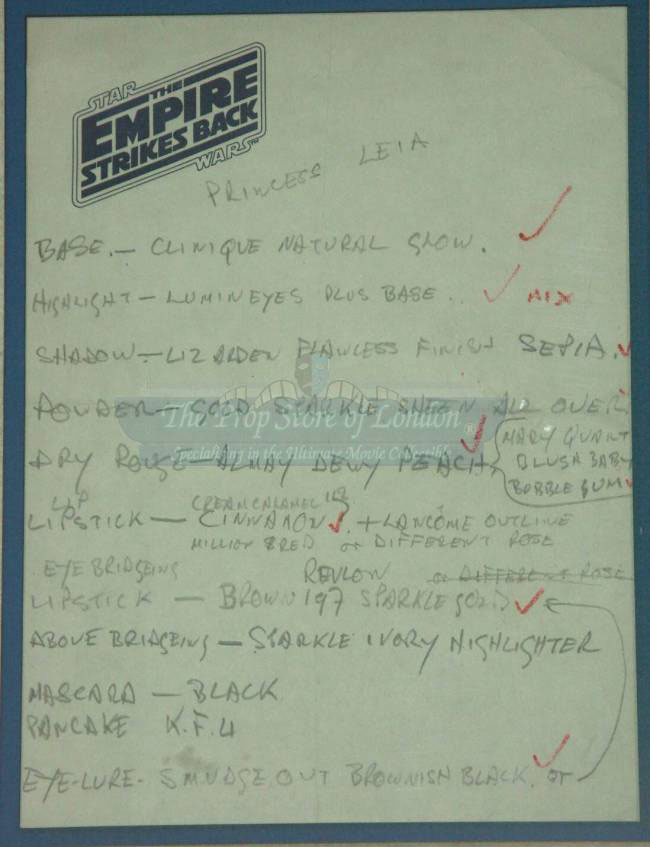 STAR
THE
EMPIRE
STRIKES BACK
WARS
PRINCESS LEIA
BASE. — CLINIQUE NATURAL GLOW.
HIGHLIGHT — LUMINEYES PLUS BASE.. MIX
SHADOW — LIZ ARDEN FLAWLESS FINISH SEPIA.
POUDER — GOLD SPARKLE SHEEN ALL OVER.
The Prop Store of London®
Specializing in the Ultimate Movie Collectibles
DRY ROUGE — ALMAY DEWY PEACH
MARY QUANT
BLUSH BABY
BUBBLE GUM
LIP CREAM CARAMEL
LIPSTICK — CINNAMON + LANCOME OUTLINE
MILLION $ RED or DIFFERENT ROSE
EYE BRIDGEING REVLON or DIFFERENT ROSE
LIPSTICK — BROWN 197 SPARKLE GOLD
ABOVE BRIDGEING — SPARKLE IVORY HIGHLIGHTER
MASCARA — BLACK
PANCAKE K.F.4
EYE-LURE - SMUDGE OUT BROWNISH BLACK. or